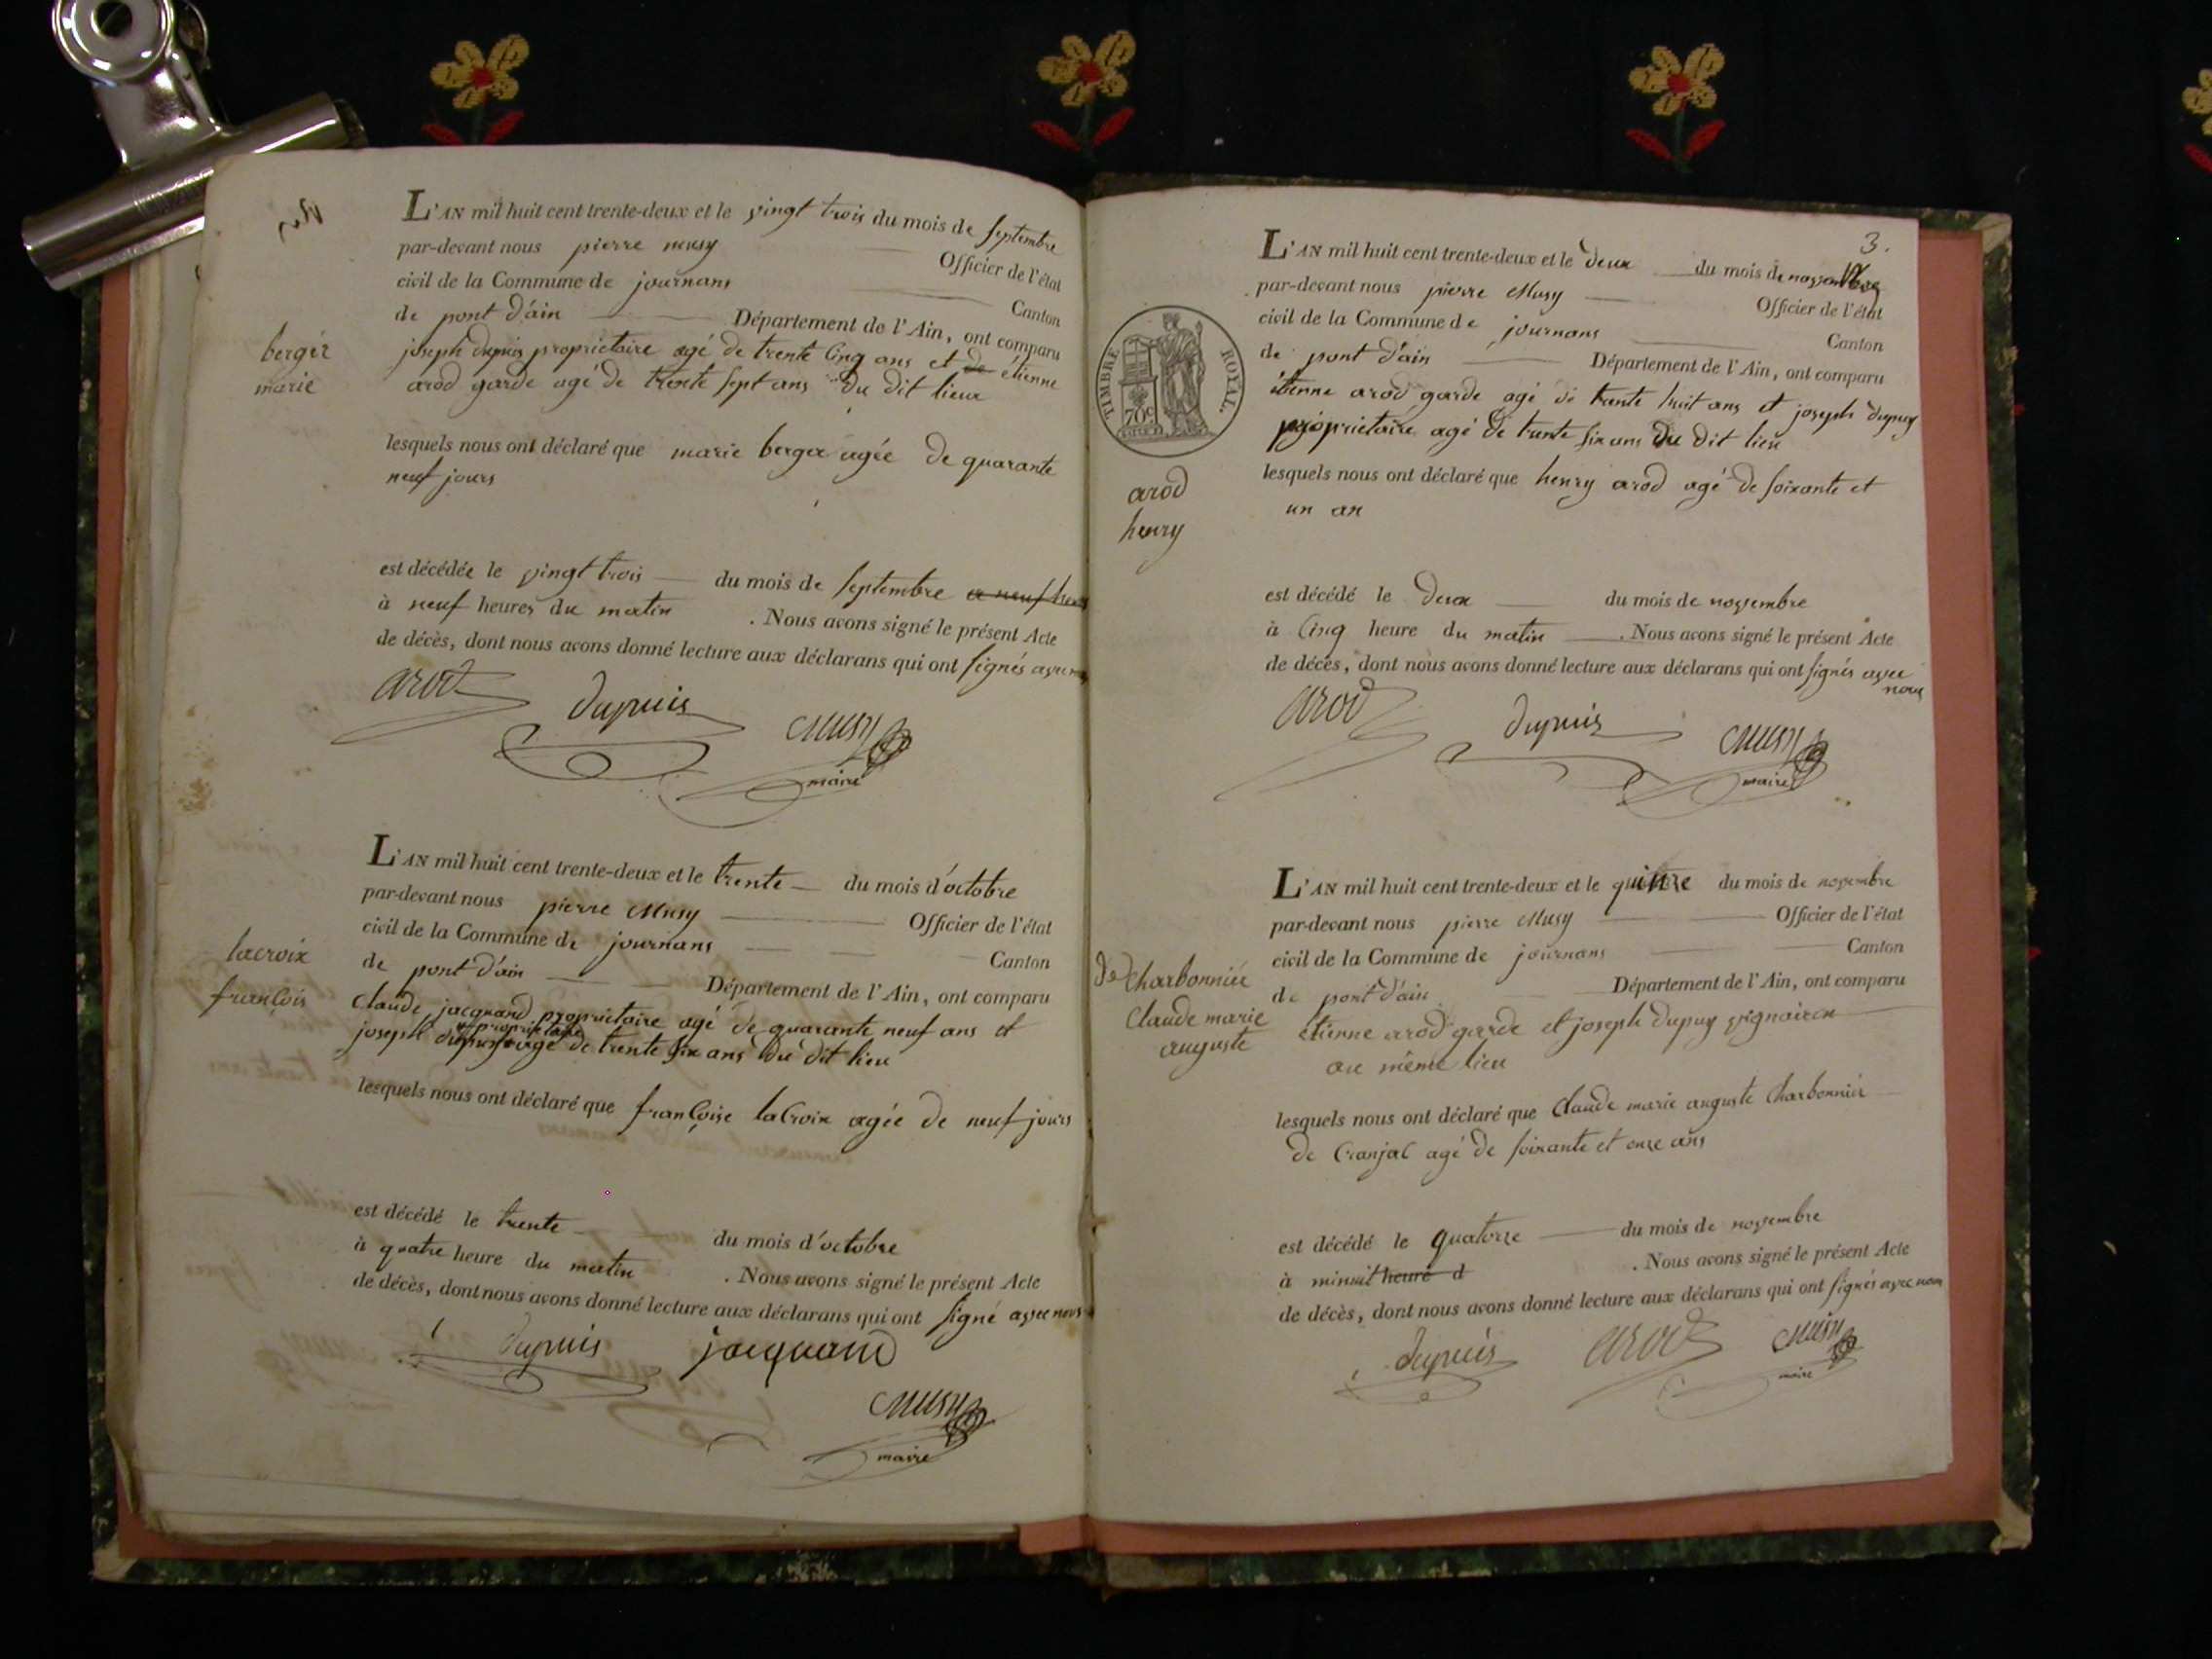 L'AN mil huit cent trente-deux et le vingt trois du mois de septembre
par-devant nous pierre musy Officier de l'état
civil de la Commune de journans Canton
de pont d'ain Département de l'Ain, ont comparu
joseph dupuis propriétaire agé de trente cinq ans et de étienne
arod garde agé de trente sept ans du dit lieux
berger
marie
lesquels nous ont déclaré que marie berger agée de quarante
neuf jours
est décédée le vingt trois du mois de septembre a neuf heures
à neuf heures du matin . Nous avons signé le présent Acte
de décès, dont nous avons donné lecture aux déclarans qui ont signés avec nous
arod dupuis Musy
maire
L'AN mil huit cent trente-deux et le trente du mois d'octobre
par-devant nous pierre Musy Officier de l'état
civil de la Commune de journans Canton
de pont d'ain Département de l'Ain, ont comparu
claude jacquand propriétaire agé de quarante neuf ans et
joseph dupuy propriétaire agé de trente six ans du dit lieu
lacroix
françois
lesquels nous ont déclaré que françoise lacroix agée de neuf jours
est décédé le trente du mois d'octobre
à quatre heure du matin . Nous avons signé le présent Acte
de décès, dont nous avons donné lecture aux déclarans qui ont signé avec nous
dupuis jacquand
Musy
maire
3.
L'AN mil huit cent trente-deux et le deux du mois de novembre
par-devant nous pierre Musy Officier de l'état
civil de la Commune de journans Canton
de pont d'ain Département de l'Ain, ont comparu
étienne arod garde agé de trente huit ans et joseph dupuy
propriétaire agé de trente six ans du dit lieu
TIMBRE ROYAL.
70c
arod
henry
lesquels nous ont déclaré que henry arod agé de soixante et
un an
est décédé le deux du mois de novembre
à cinq heure du matin . Nous avons signé le présent Acte
de décès, dont nous avons donné lecture aux déclarans qui ont signés avec
nous
arod dupuis Musy
maire
L'AN mil huit cent trente-deux et le quinze du mois de novembre
par-devant nous pierre Musy Officier de l'état
civil de la Commune de journans Canton
de pont d'ain Département de l'Ain, ont comparu
étienne arod garde et joseph dupuy vigneron
au même lieu
de Charbonnier
Claude marie
auguste
lesquels nous ont déclaré que Claude marie auguste Charbonnier
de Cranjac agé de soixante et onze ans
est décédé le quatorze du mois de novembre
à minuit heure d . Nous avons signé le présent Acte
de décès, dont nous avons donné lecture aux déclarans qui ont signés avec nous
dupuis arod Musy
maire